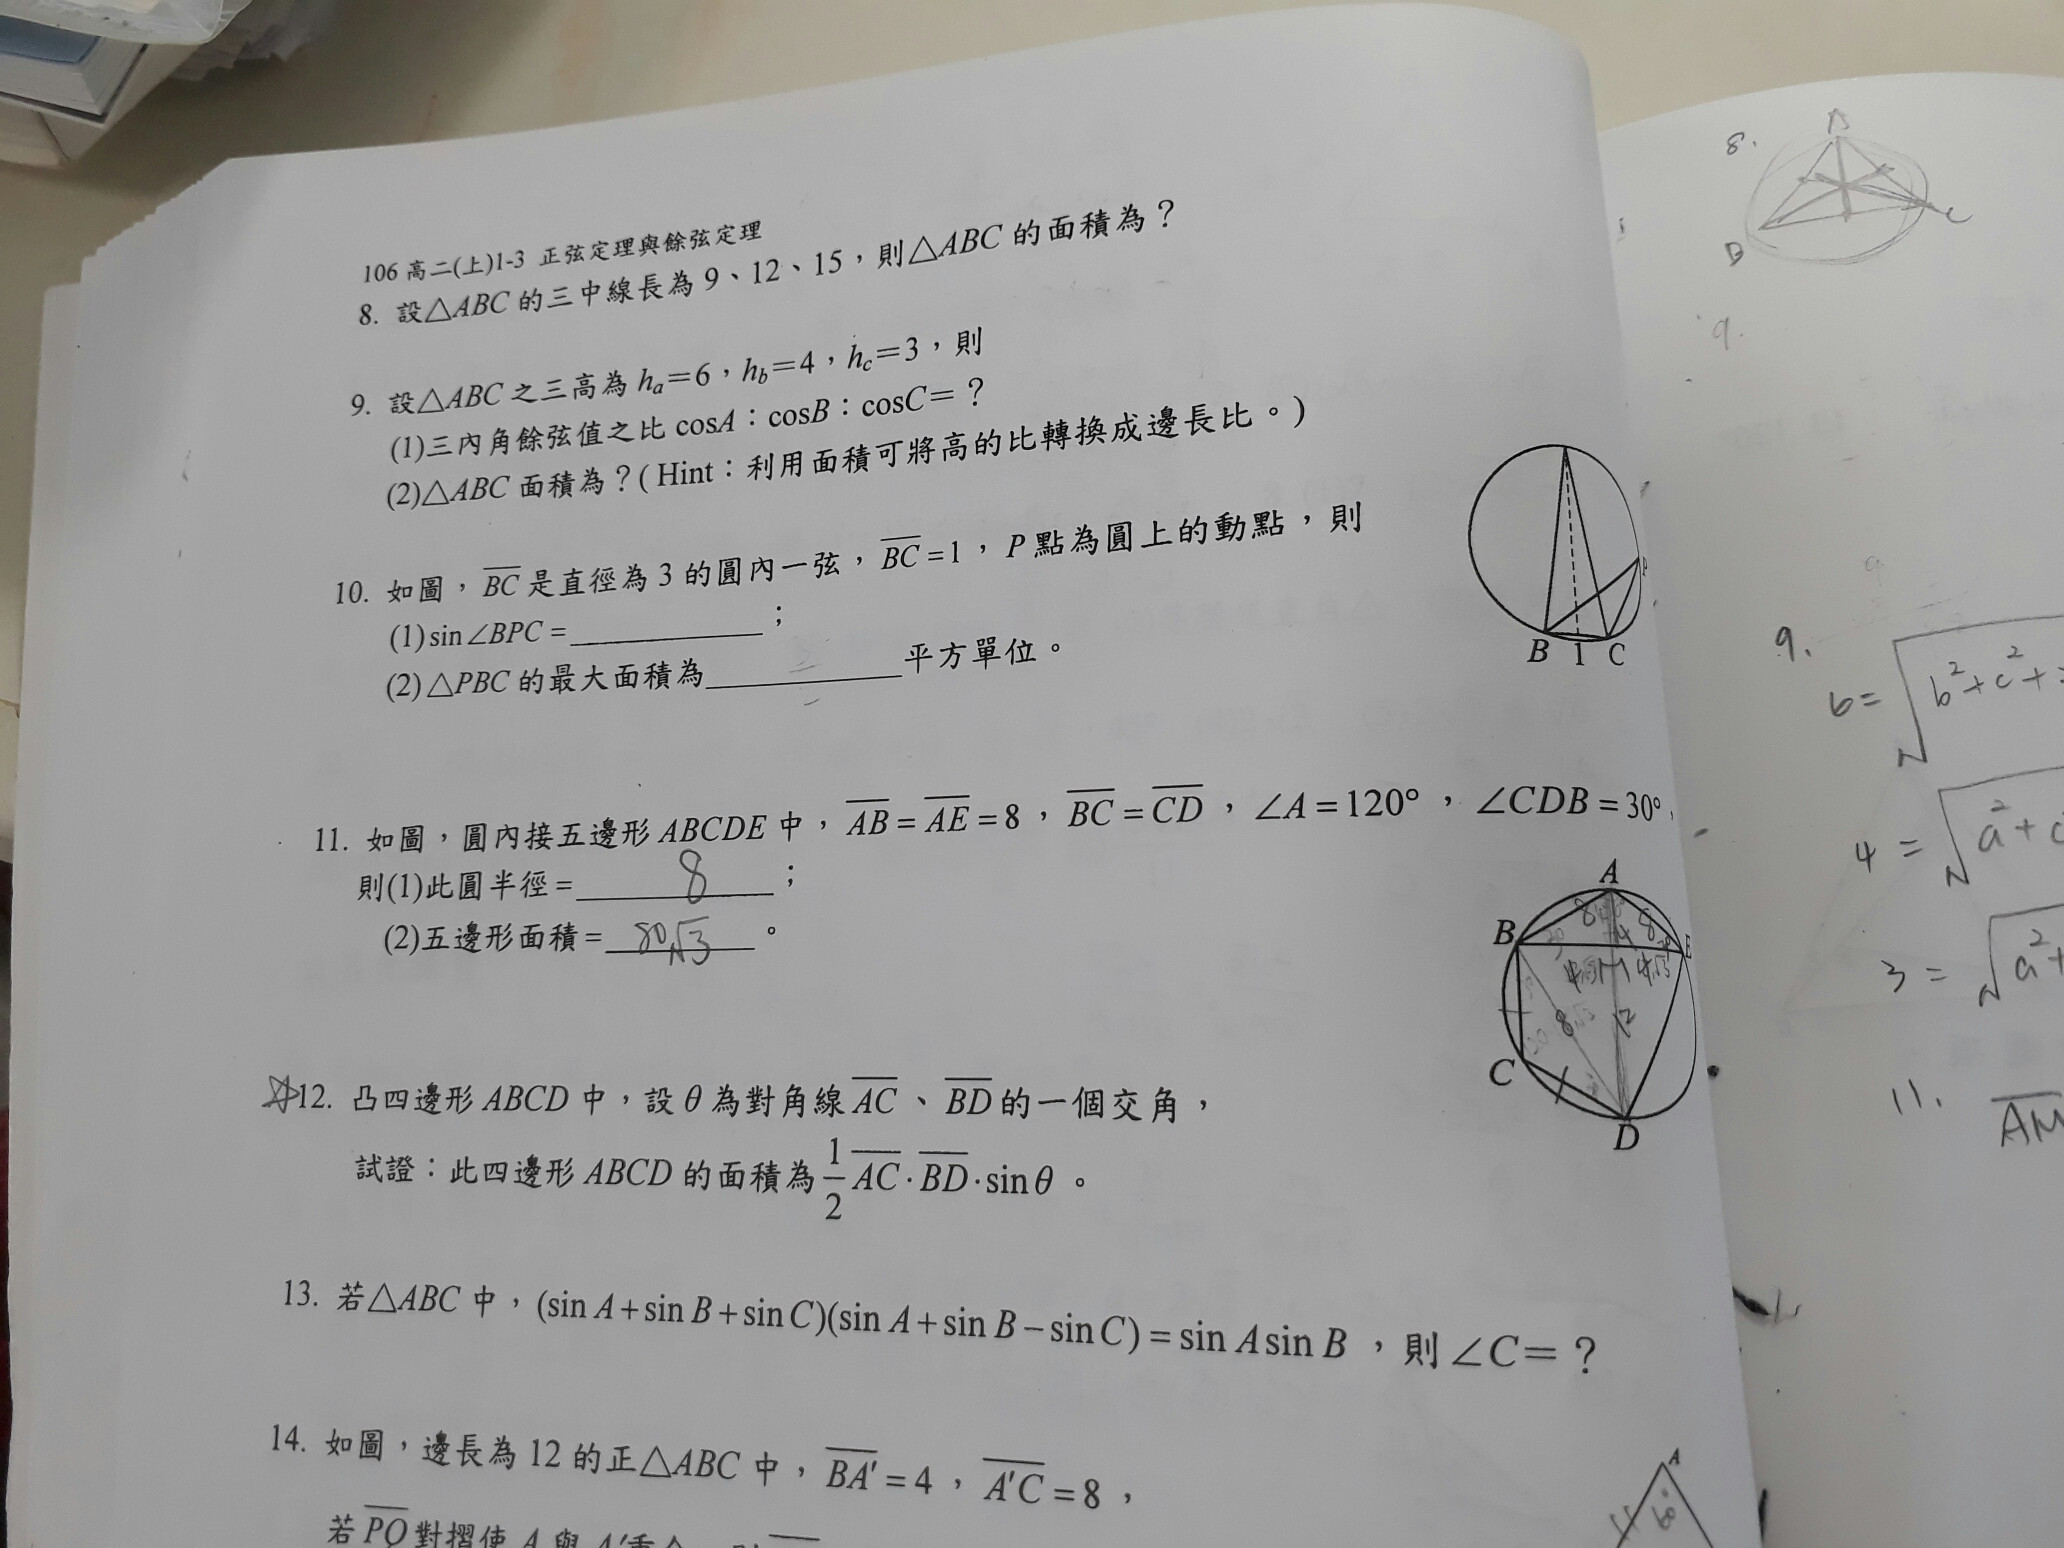 106 高二(上)1-3 正弦定理與餘弦定理
8. 設△ABC 的三中線長為 9、12、15，則△ABC 的面積為？
9. 設△ABC 之三高為 hₐ=6，h_b=4，h_c=3，則
(1)三內角餘弦值之比 cosA：cosB：cosC=？
(2)△ABC 面積為？( Hint：利用面積可將高的比轉換成邊長比。)
10. 如圖，\overline{BC} 是直徑為 3 的圓內一弦，\overline{BC}=1，P 點為圓上的動點，則
(1) sin∠BPC = ；
(2) △PBC 的最大面積為 平方單位。
B 1 C
P
11. 如圖，圓內接五邊形 ABCDE 中，\overline{AB}=\overline{AE}=8，\overline{BC}=\overline{CD}，∠A=120°，∠CDB=30°，
則(1)此圓半徑= 8 ；
(2)五邊形面積= 80√3 。
A
B
E
C
D
8
8
12
☆12. 凸四邊形 ABCD 中，設 θ 為對角線 \overline{AC}、\overline{BD} 的一個交角，
試證：此四邊形 ABCD 的面積為 \frac{1}{2}\overline{AC}·\overline{BD}·sinθ。
13. 若△ABC 中，(sin A+sin B+sin C)(sin A+sin B−sin C)=sin A sin B，則∠C=？
14. 如圖，邊長為 12 的正△ABC 中，\overline{BA'}=4，\overline{A'C}=8，
若 \overline{PQ} 對摺使 A 與
A
60
8.
A
B
C
9.
9.
6=√b²+c²+
4=√a²+c
3=√a²+
11. \overline{AM